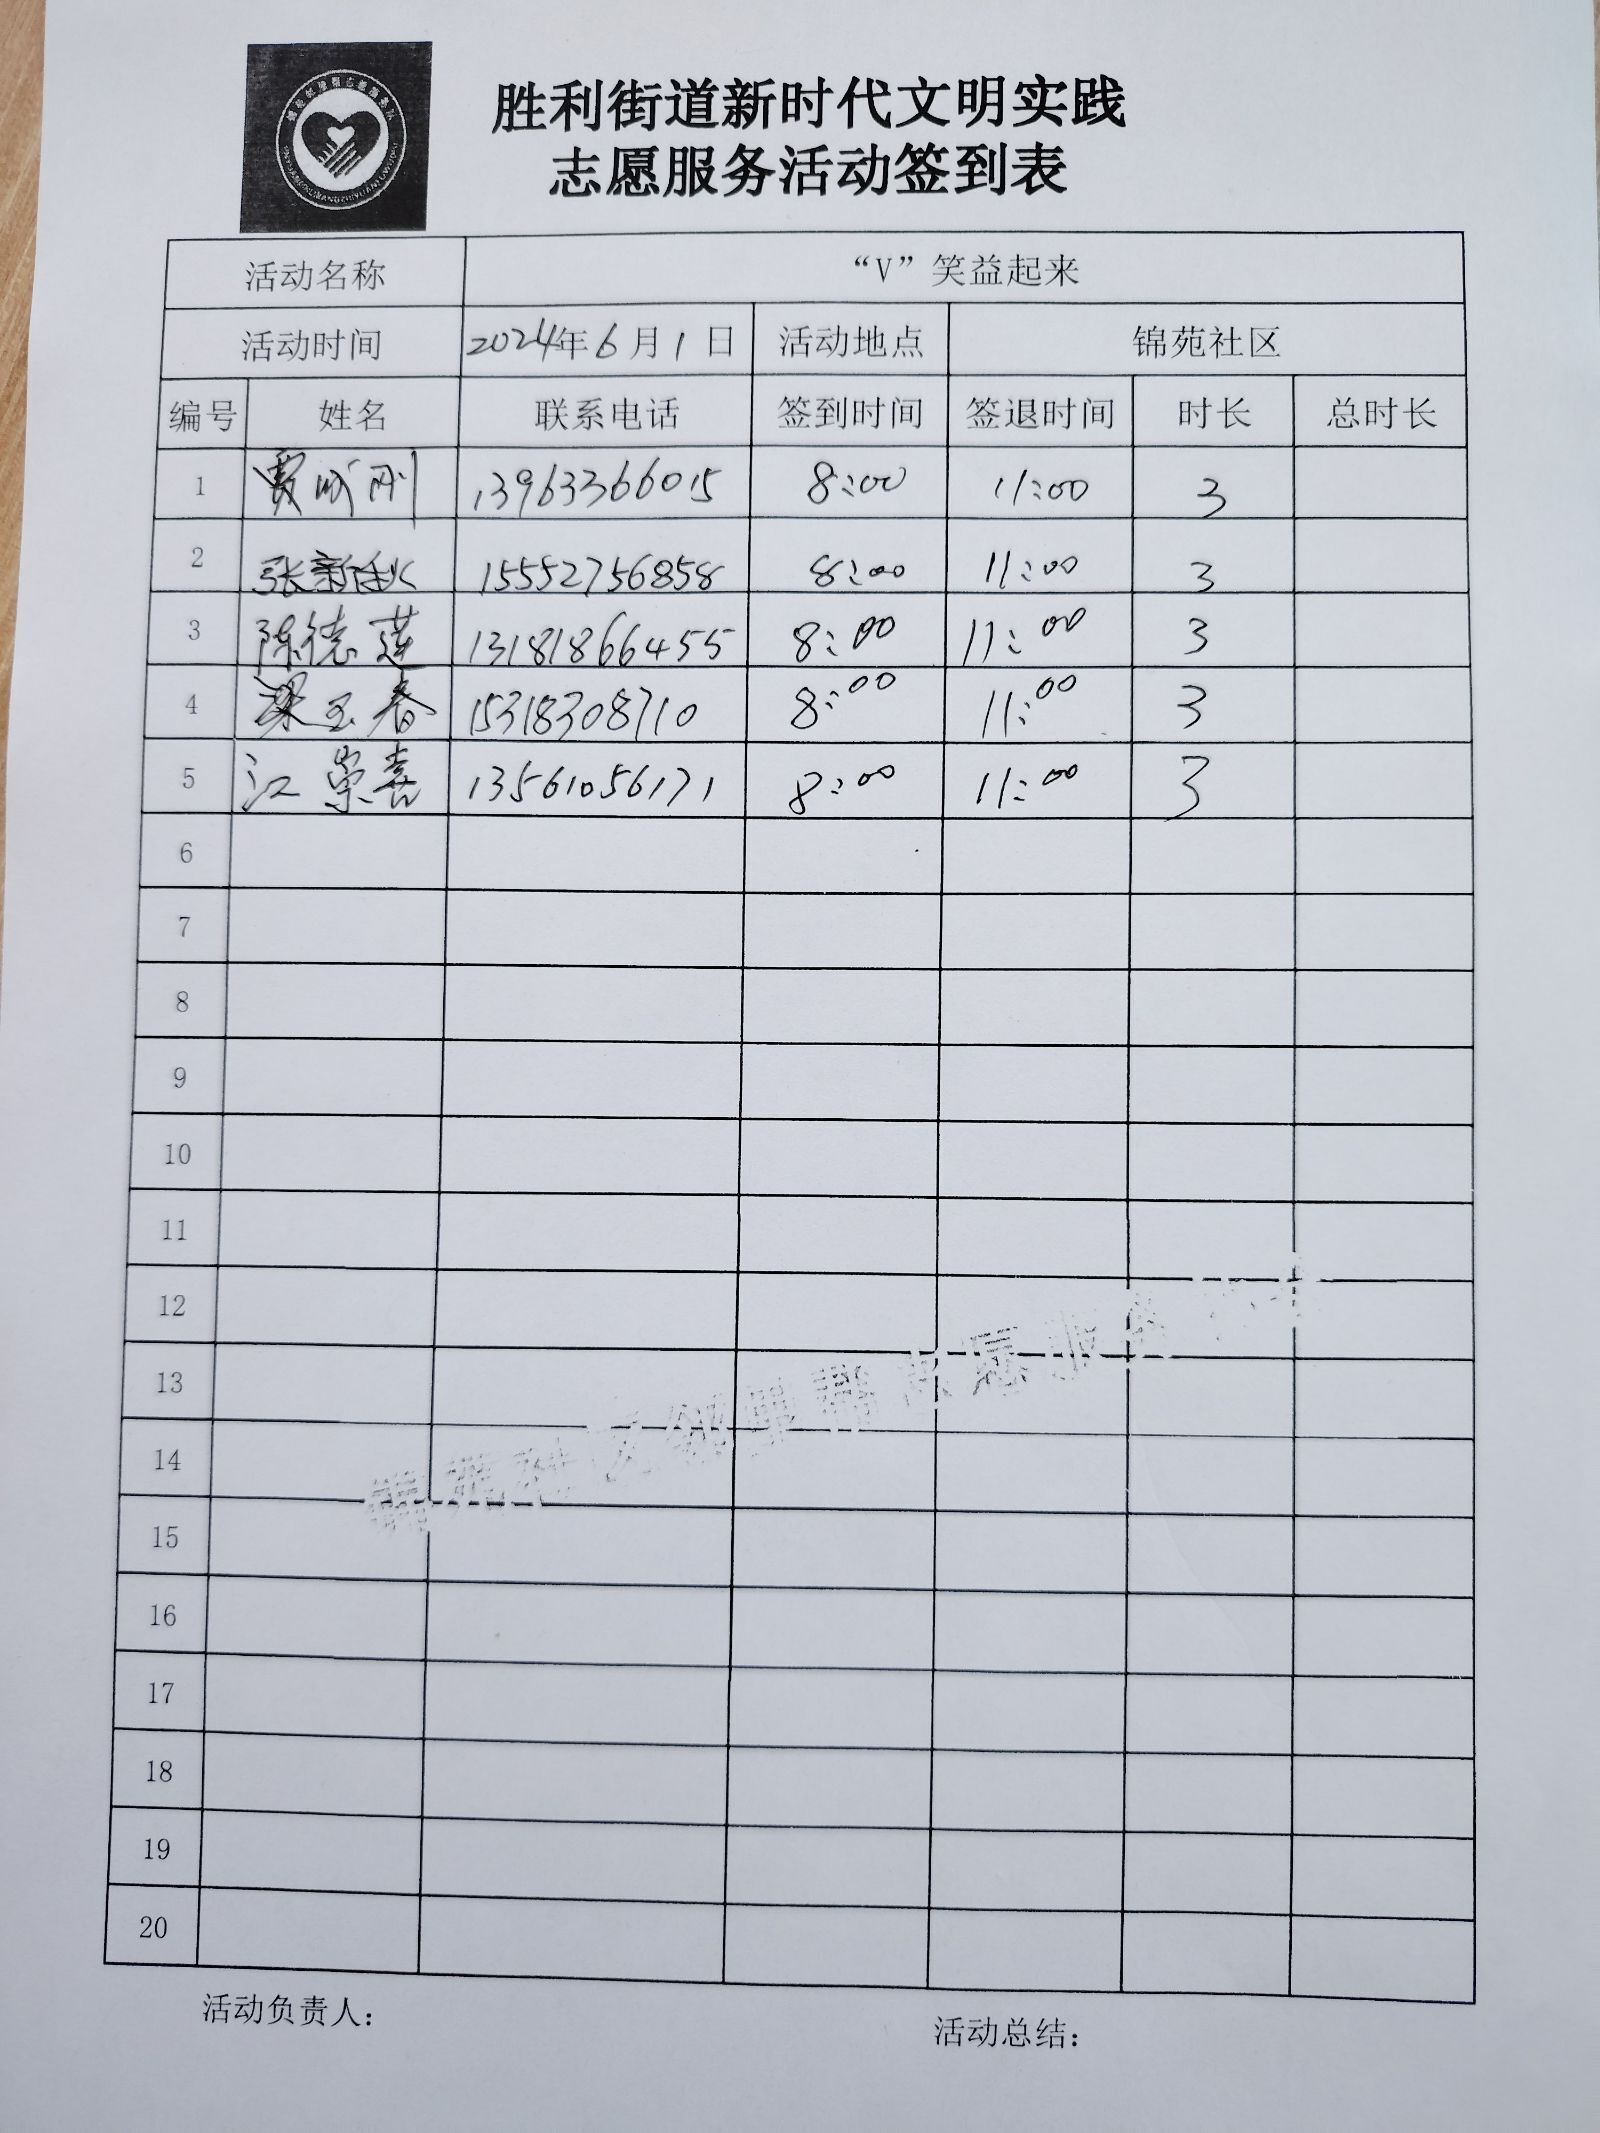 胜利街道新时代文明实践
志愿服务活动签到表
活动名称 “V”笑益起来
活动时间 2024年6月1日 活动地点 锦苑社区
编号 姓名 联系电话 签到时间 签退时间 时长 总时长
1 贾成刚 13963366015 8:00 11:00 3
2 张新秋 15552756858 8:00 11:00 3
3 陈德莲 13181866455 8:00 11:00 3
4 梁玉春 15318308710 8:00 11:00 3
5 江崇喜 13561056171 8:00 11:00 3
6
7
8
9
10
11
12
13
14
15
16
17
18
19
20
活动负责人：
活动总结：